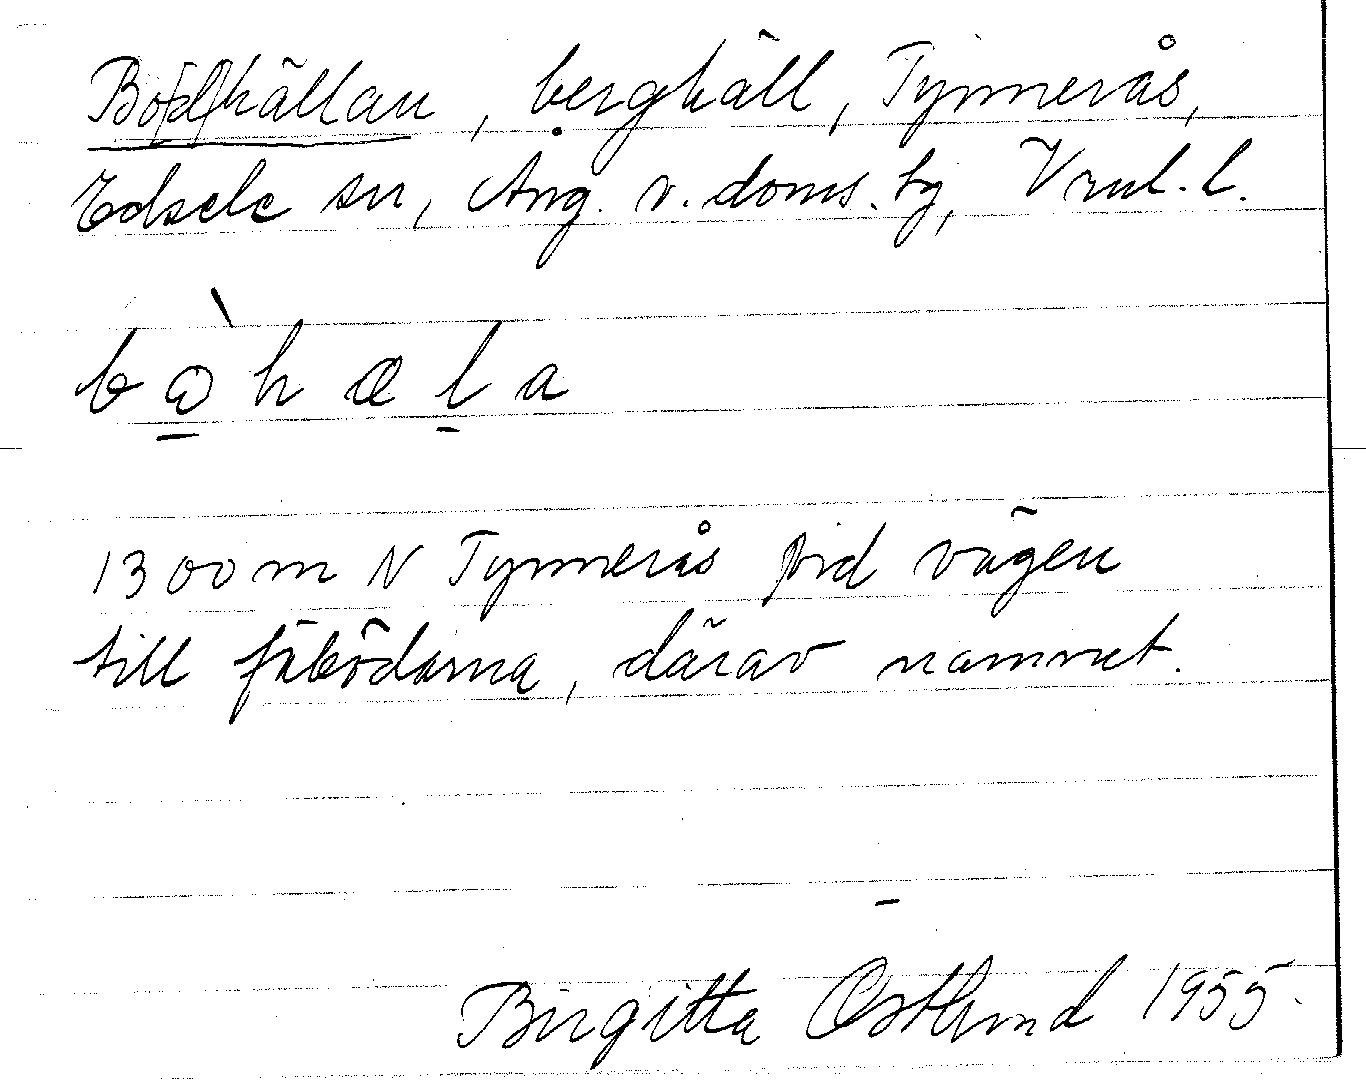 Bo[d]hällan, berghäll, Tynnerås,
Edsele sn, Ång. v. doms. tg, Vrnl. l.
1300 m N Tynnerås vid vägen
till fäbodarna, därav namnet.
Birgitta Östlund 1955.